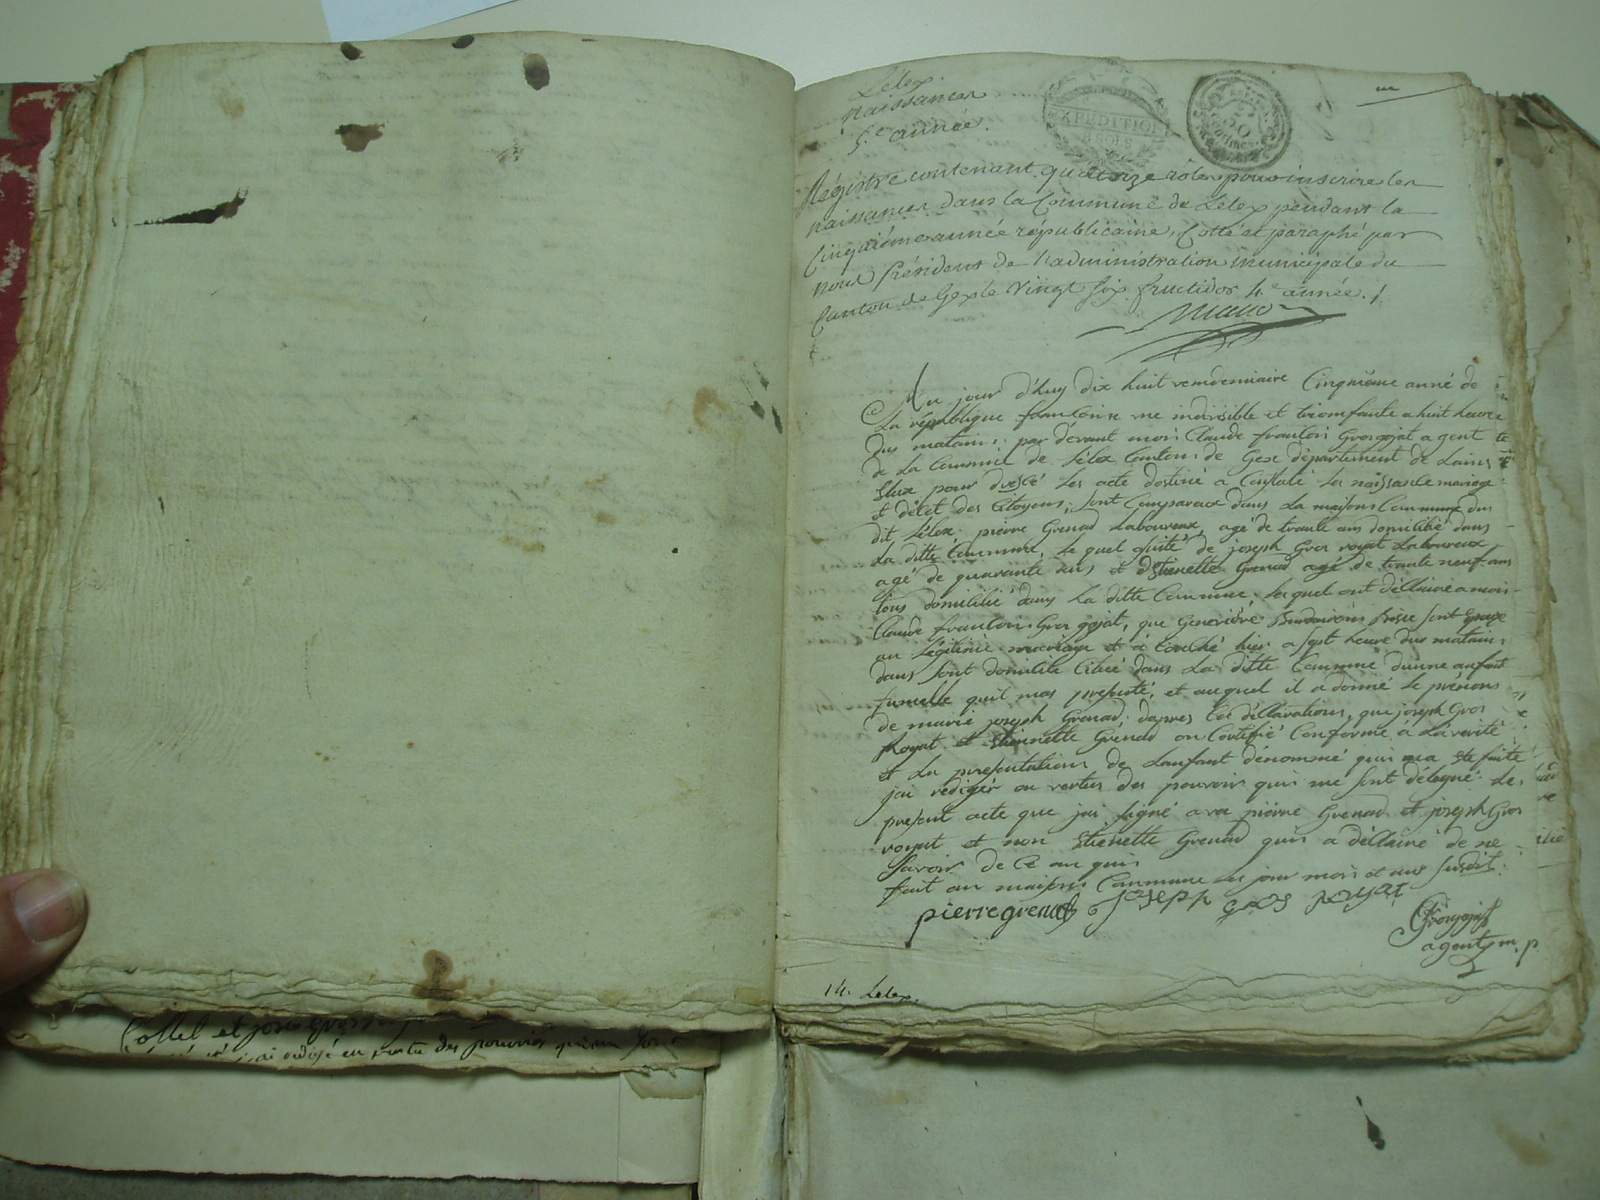 Lélex.
naissances
5.e année.
EXPEDITION
50
centimes
Régistre contenant quatorze rôles pour inscrire les
naissances dans la Commune de Lélex pendant la
Cinquième année républicaine, Cotté et paraphé par
nous Président de l'administration municipale du
Canton de Gex le vingt six fructidor 4.e année.
Au jour d'huy dix huit vendemiaire Cinquième anné de
La république francoise une indivisible et triomfante a huit heure
dus matain, par dévant moi Claude francoi Grosgojat agent
de La Commune de Lélex Canton de Gex département de Lain
Elux pour dressé Les acte destiné à Constaté Les naissance mariage
et décet des Citoyens, sont Comparaux dans La maison Commune dus
dit Lélex, pierre Grenad Laboureux, agé de trante ans domicilié dans
La ditte Commune, Le quel assisté de joseph Gros royat Laboureux
agé de quarante ans et Etienette Grenad agé de trante neuf ans
tous domicilié dans La ditte Commune, Les quel ont déllairé a moi
Claude francoi Grosgojat, que Geneviéve sont Epouse
an Légitime mariage et à Couché hier a sept heure dus matain,
dans sont domicile dans La ditte Commune dunne anfant
fumelle quil mas présenté, et auquel il a donné Le prénons
de marie joseph Grenad, dapres Les déllarations, que joseph Gros
Royat et Etienette Grenad on Certifié Conforme á La vérité
et La présentation de Lanfant dénommé qui ma ete faite
jai rédigér an vertus des pouvoir qui me sont délégué Le
présent acte que jai signé avec pierre Grenad et joseph Gros
royat et non Etienette Grenad quis a déllairé de ne
savoir de Ce an quis
fait an maison Commune Les jour mois et ans susdit
pierre grenad joseph gros royat
Grosgojat
agent m. p.
14. Lelex.
Cottet et
rédigé en vertu des pouvoirs qui me sont